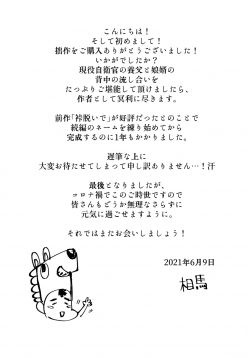 こんにちは！
そして初めまして！
拙作をご購入ありがとうございました！
いかがでしたか？
現役自衛官の養父と娘婿の
背中の流し合いを
たっぷりご堪能して頂けましたら、
作者として冥利に尽きます。
前作「裃脱いで」が好評だったとのことで
続編のネームを練り始めてから
完成するのに1年もかかりました。
遅筆な上に
大変お待たせてしまって申し訳ありません…！汗
最後となりましたが、
コロナ禍でこのご時世ですので
皆さんもどうか無理なさらずに
元気に過ごせますように。
それではまたお会いしましょう！
2021年6月9日
相馬